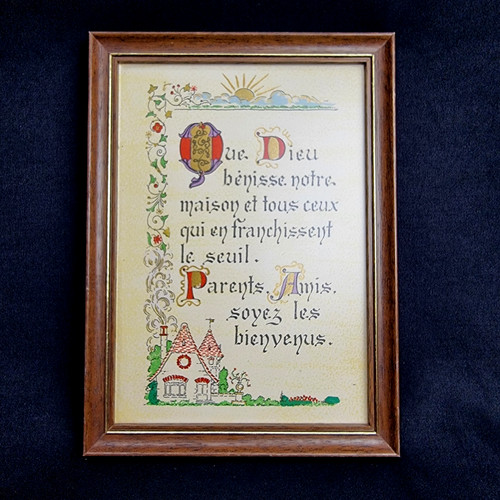 Que Dieu
bénisse notre
maison et tous ceux
qui en franchissent
le seuil.
Parents, Amis,
soyez les
bienvenus.